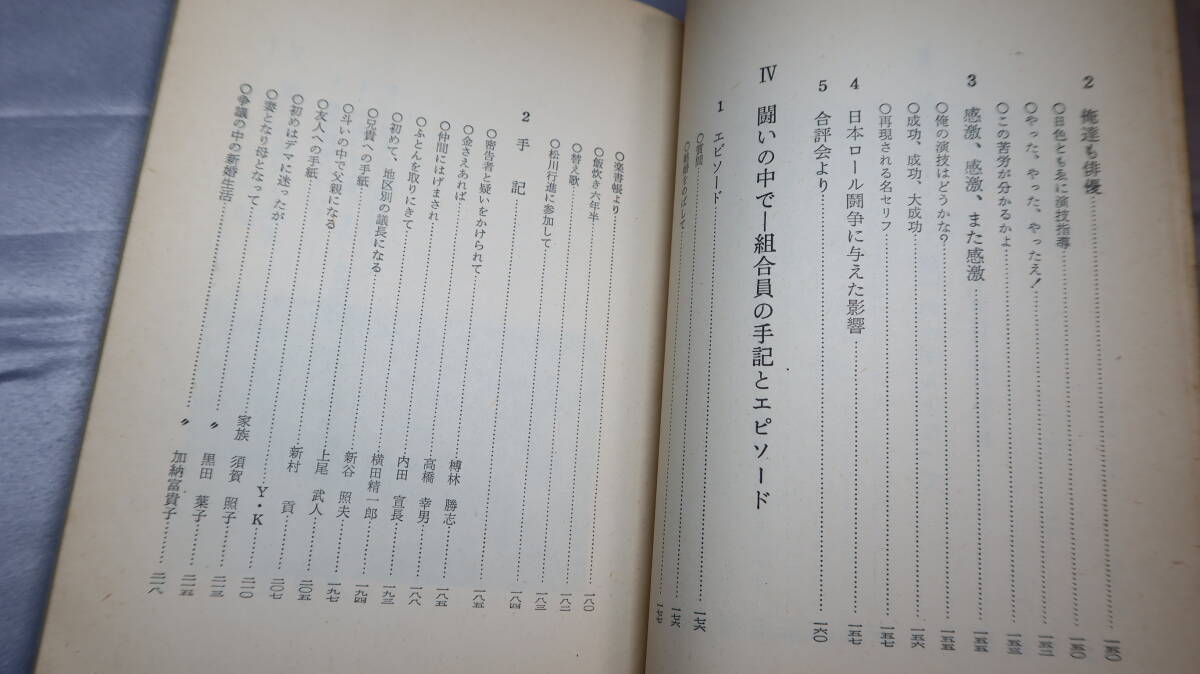 2 俺達も俳優……一五〇
○日色ともゑに演技指導……一五〇
○やった、やった、やったえ!……一五二
○この苦労が分かるかよ……一五三
3 感激、感激、また感激……一五五
○俺の演技はどうかな?……一五五
○成功、成功、大成功……一五六
○再現される名セリフ……一五七
4 日本ロール闘争に与えた影響……一五七
5 合評会より……一六〇
Ⅳ 闘いの中で―組合員の手記とエピソード
1 エピソード……一七六
○質問……一七六
○結婚をのばして……一七七
○楽書帳より……一八〇
○飯炊き六年半……一八二
○替え歌……一八三
○松川行進に参加して……一八四
2 手記……一八五
○密告者と疑いをかけられて……榑林 勝志……一八五
○金さえあれば……高橋 幸男……一八八
○仲間にはげまされ……内田 宣長……一九三
○ふとんを取りにきて……横田精一郎……一九四
○初めて、地区別の議長になる……新谷 照夫……一九七
○兄貴への手紙……上尾 武人……二〇五
○斗いの中で父親になる……新村 貢……二〇七
○友人への手紙……Y・K……二一〇
○初めはデマに迷ったが……家族 須賀 照子……二一三
○妻となり母となって……〃 黒田 葉子……二一五
○争議の中の新婚生活……〃 加納富貴子……二一八